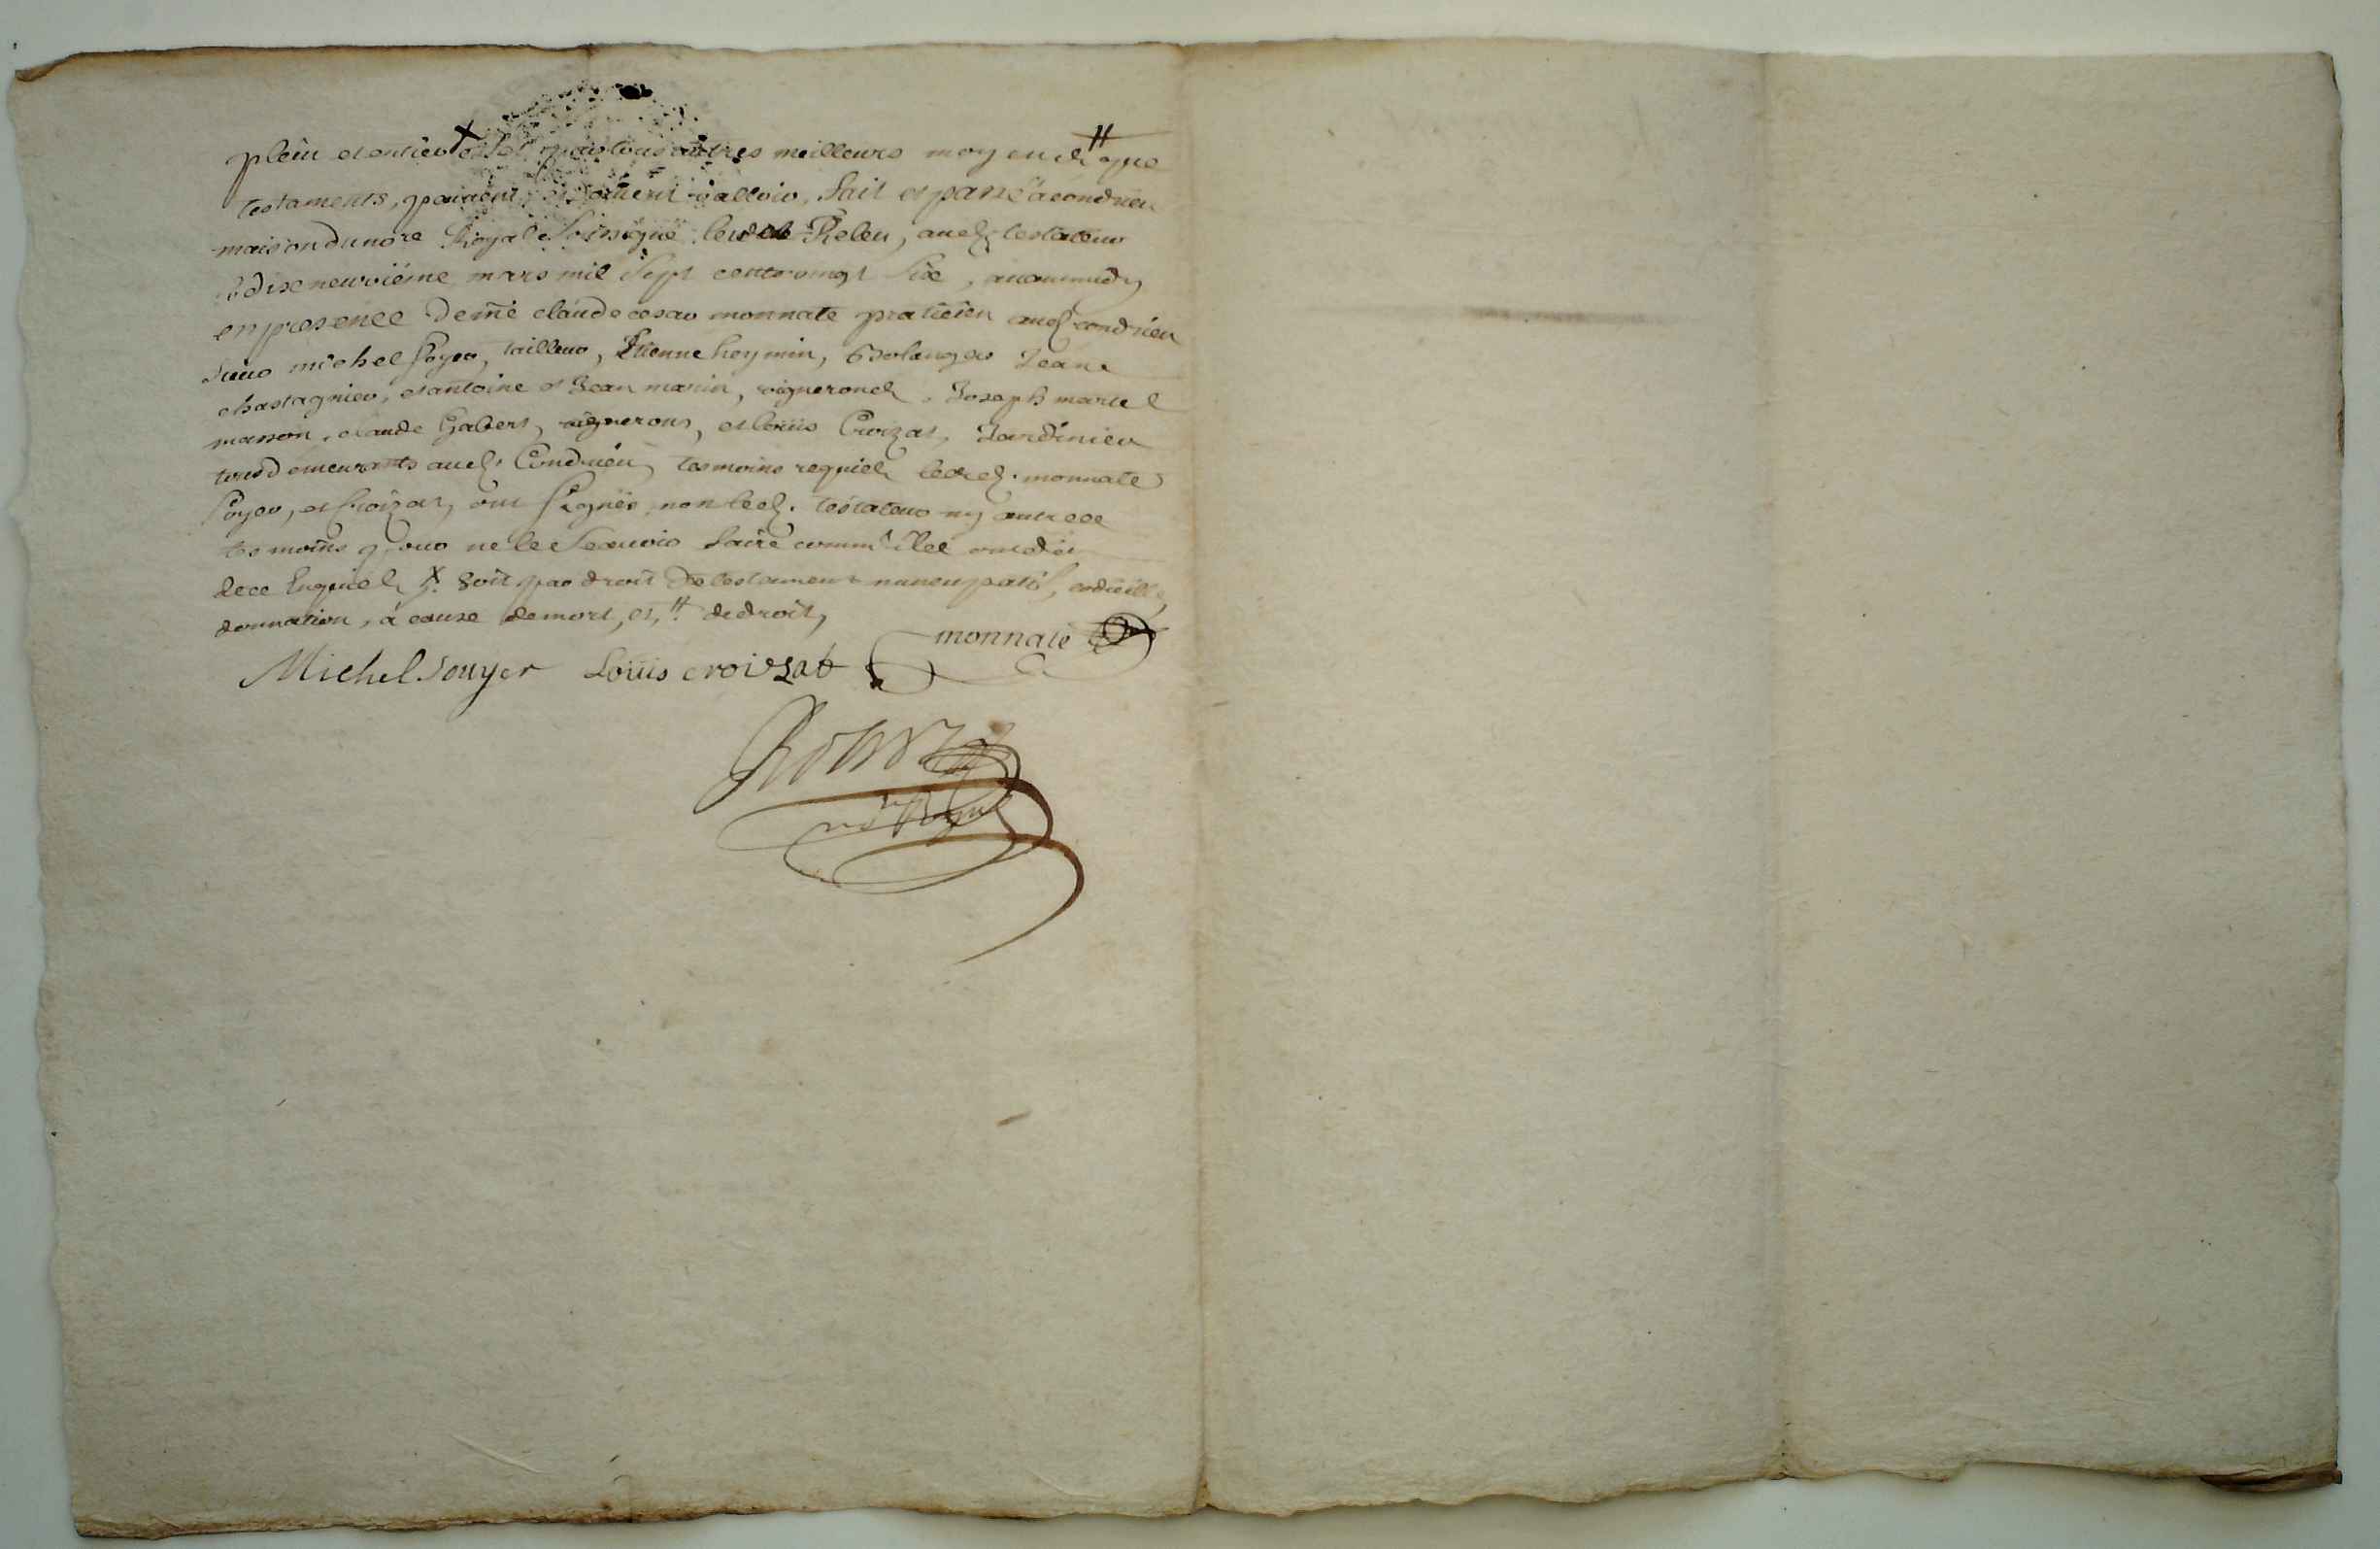 plein et entier X effet par tous autres meilleurs moyends # que
testaments, peuvent et doivent valloir, fait et passé a condrieu
maison du no.re Royal soubsigné, leu et releu, aud. testateur
le dixneuvième mars mil sept cent vingt six, avant midy
en presence de me claude cesar monnate praticien aud. condrieu
sieur michel soyer, tailleur, Etienne heymin, Bolanger Jean
chastagnier, et antoine et Jean marin, vignerond, Joseph martel
masson, claude Gabert, vigneron, et loüis Croizat, Jardinier
tous demeurants aud. Condrieu, tesmoins requied lesd. monnate
soyer, et croizat, ont signés, non led. testateur ny autres
tesmoins pour ne le scavoir faire comm' ilz ont dit
de ce Enquied X. soit par droit de testament nuncupatif, codicille,
donnation, à cause de mort, et, #. de droit,
monnate
Michel Souyer Loüis croizat
no.re Royal